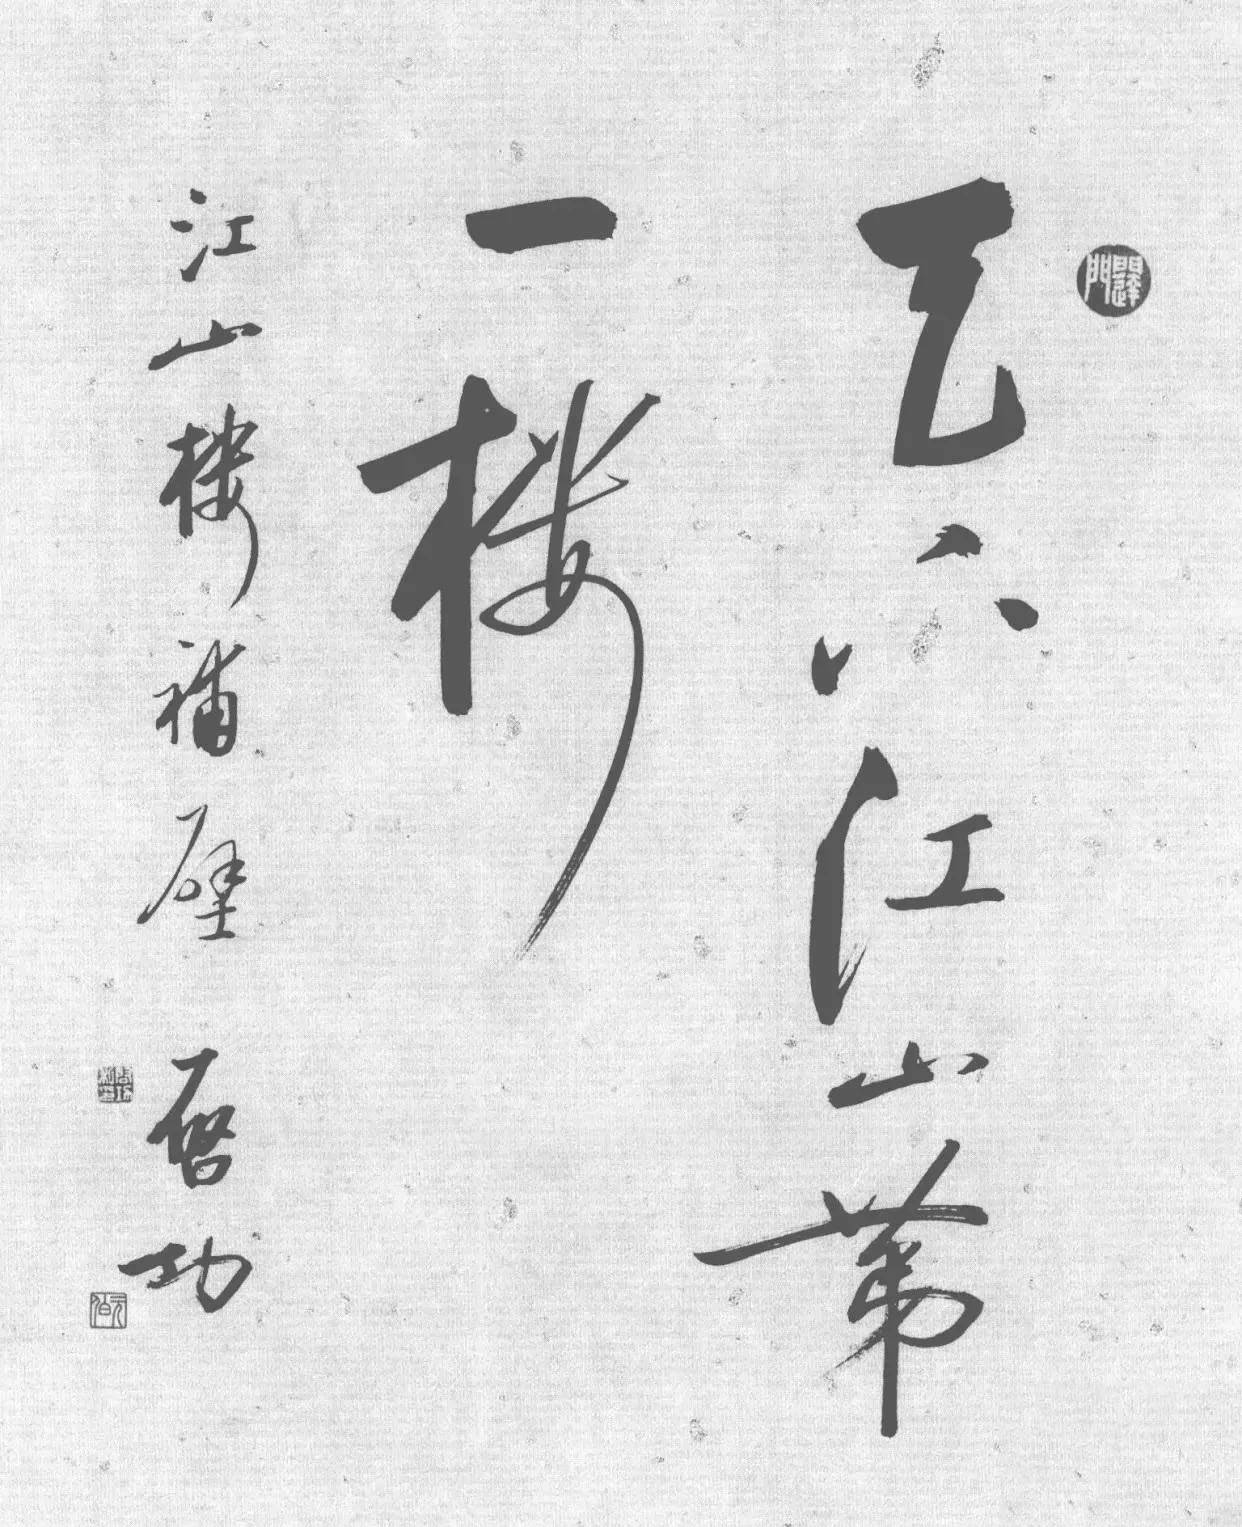 天下江山第
一楼
江山楼補壁 啓功
元白